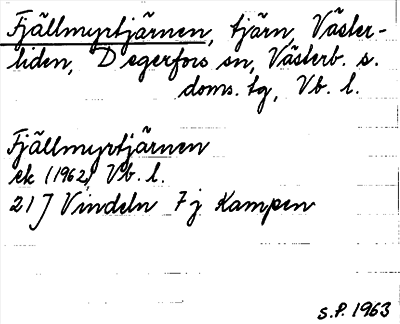 Fjällmyrtjärnen, tjärn, Väster-
liden, Degerfors sn, Västerb. s.
doms. tg, Vb. l.
Fjällmyrtjärnen
ek (1962) Vb. l.
21 J Vindeln 7 j Kampen
S.P. 1963